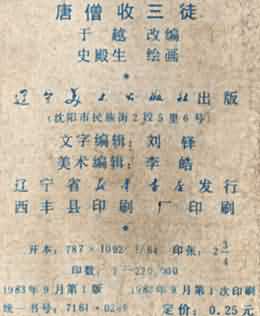 唐僧收三徒
于越 改编
史殿生 绘画
辽宁美术出版社出版
(沈阳市民族街2段5里6号)
文字编辑: 刘铎
美术编辑: 李皓
辽宁省新华书店发行
西丰县印刷厂印刷
开本: 787×1092 1/64 印张: 2 3/4
印数: 1—220,000
1983年9月第1版 1983年9月第1次印刷
统一书号: 7161· 定价: 0.25元